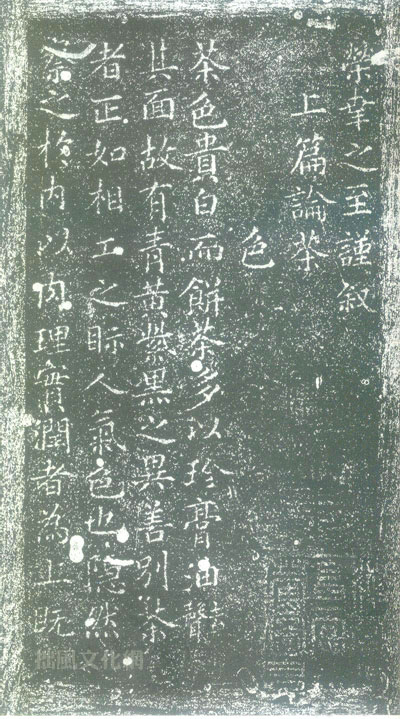 榮幸之至謹叙
上篇論茶
色
茶色貴白而餅茶多以珍膏油去聲
其面故有青黃紫黑之異善別茶
者正如相工之眎人氣色也隠然
察之於內以肉理實潤者為上既
拙風文化網